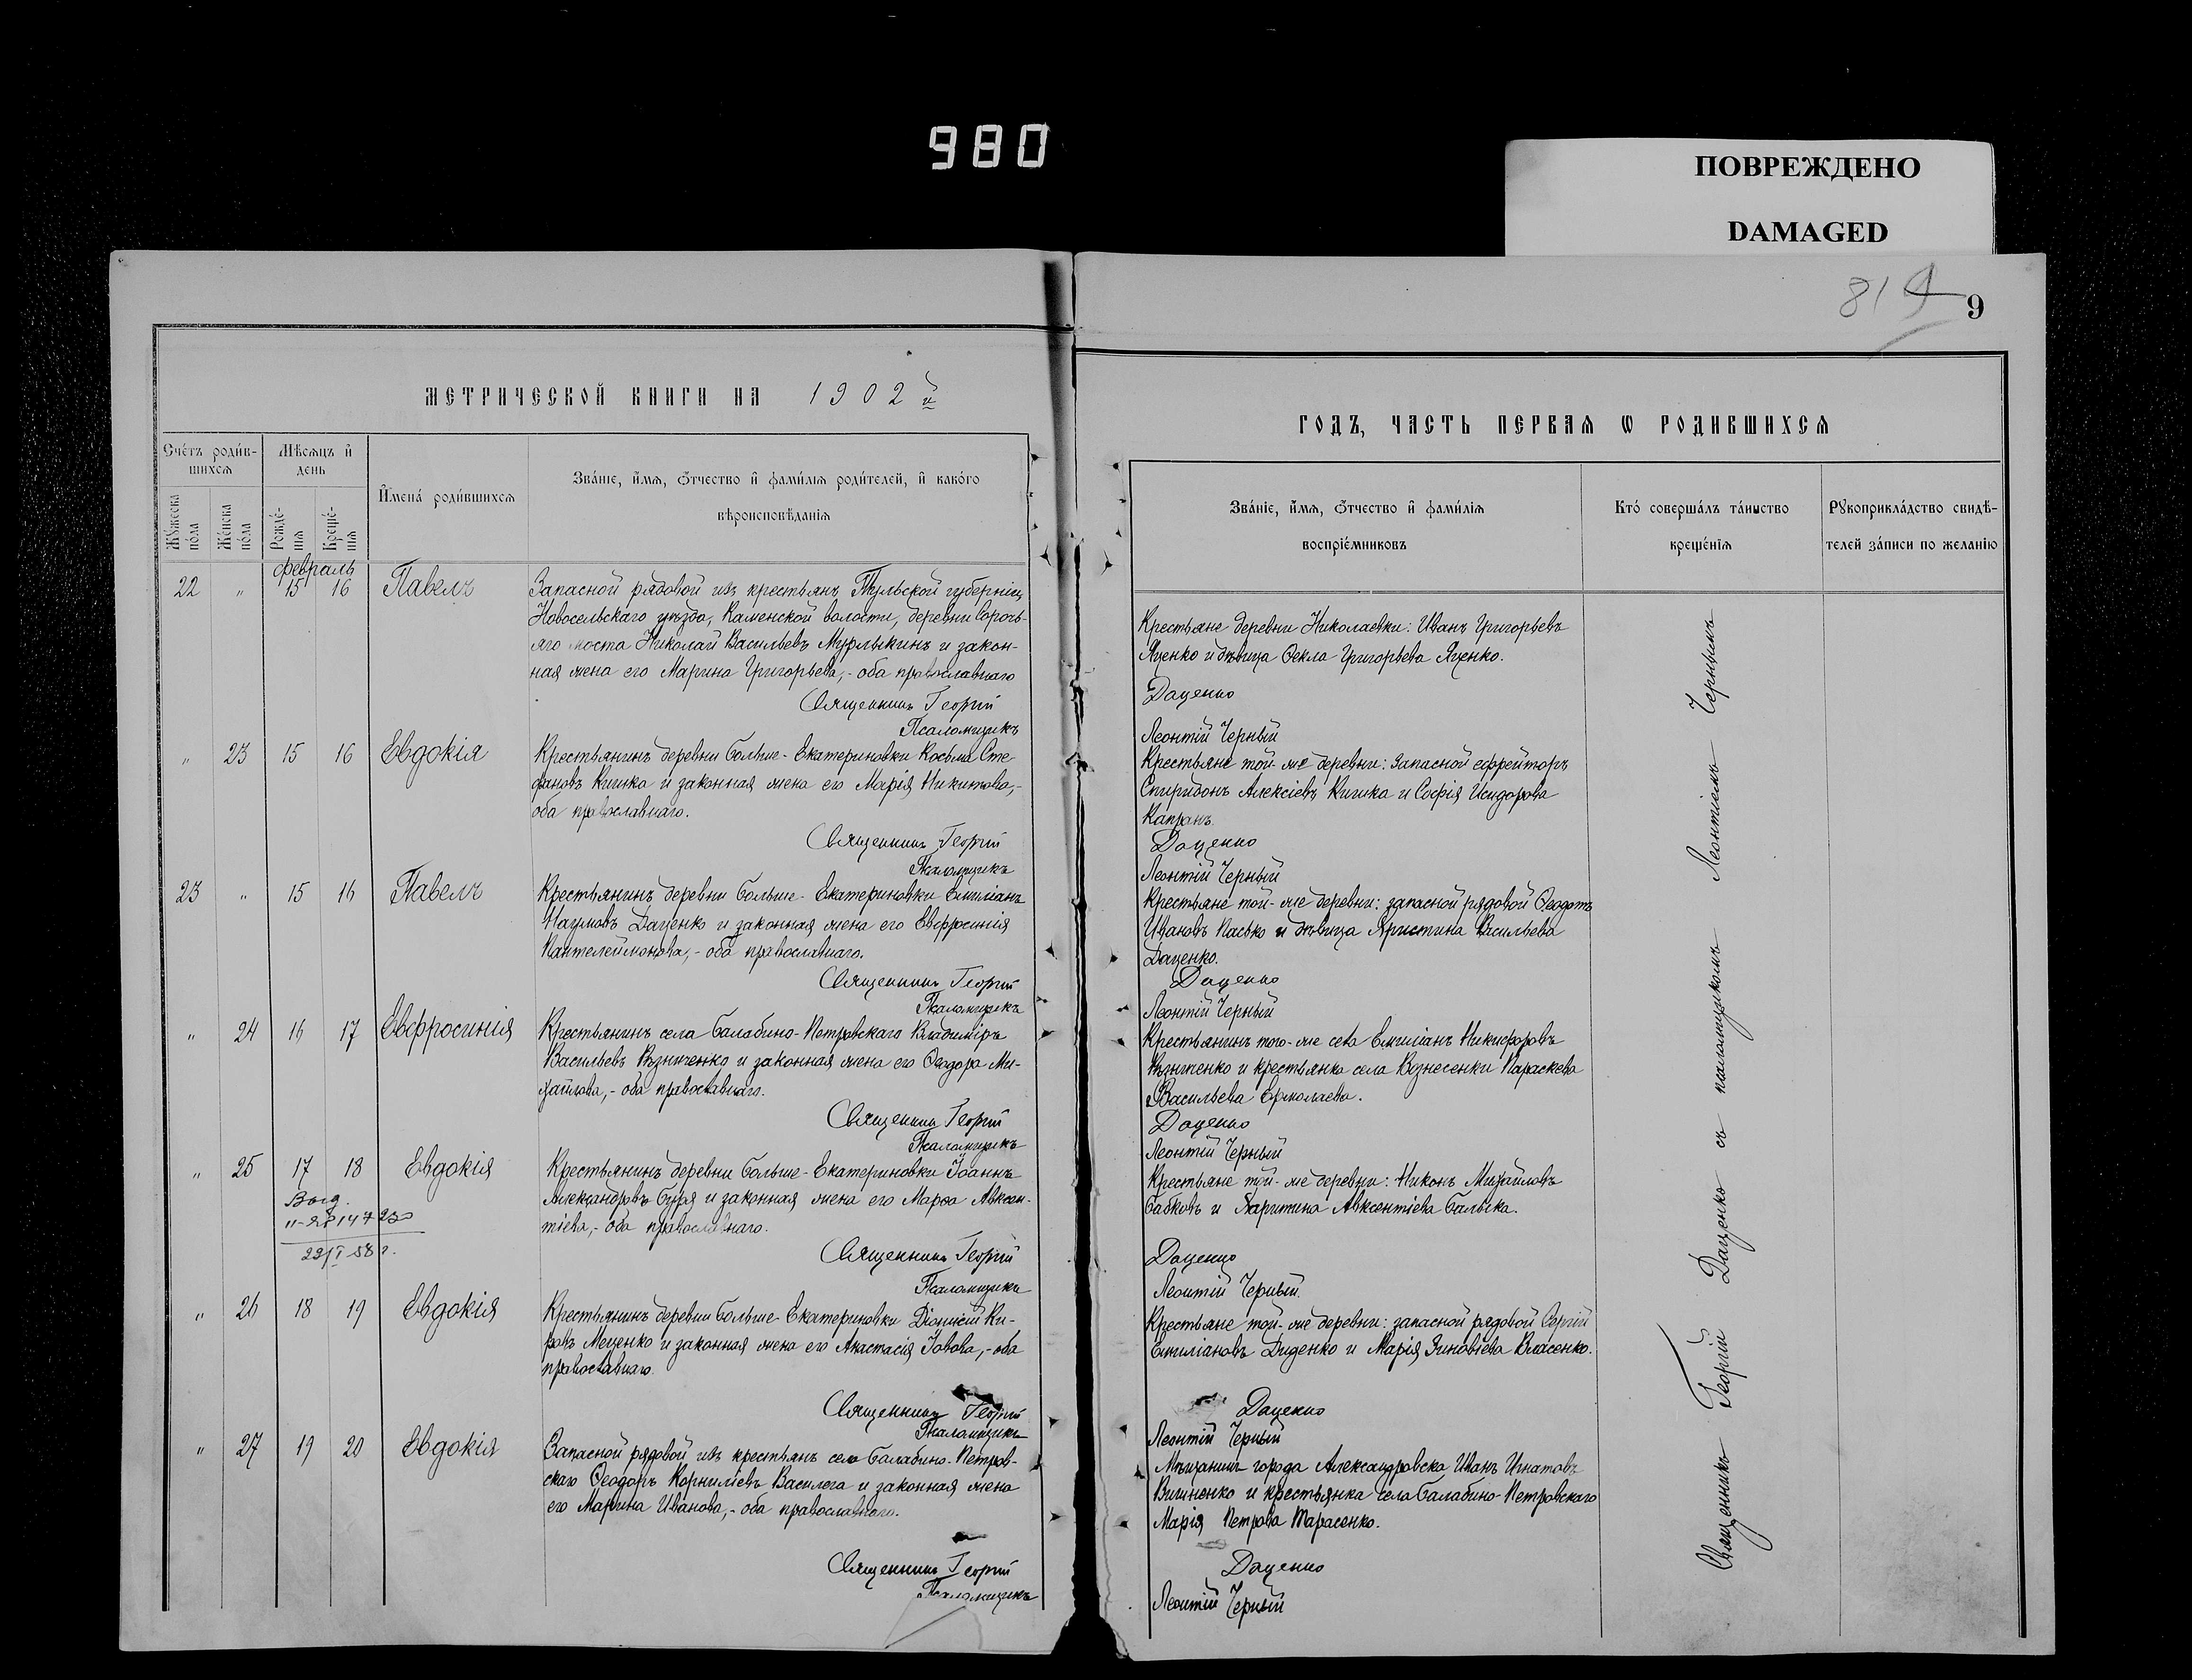 980
ПОВРЕЖДЕНО
DAMAGED
819 9
МЕТРИЧЕСКОЙ КНИГИ НА 1902й
Счетъ родив-
шихся
Мѣсяцъ и
день
Мужеска
пола
Женска
пола
Рожде-
нія
Креще-
нія
Имена родившихся
Званіе, имя, отчество и фамилія родителей, и какого
вѣроисповѣданія
февраль
22 „ 15 16 Павелъ
Запасной рядовой изъ крестьянъ Тульской губерніи,
Новосельскаго уѣзда, Каменской волости, деревни Сорочь-
яго моста Николай Васильевъ Мурлыкинъ и закон-
ная жена его Марина Григорьева,- оба православнаго
Священникъ Георгій
Псаломщикъ
„ 23 15 16 Евдокія
Крестьянинъ деревни Больше-Екатериновки Косьма Сте-
фановъ Кишка и законная жена его Марія Никитова,-
оба православнаго.
Священникъ Георгій
Псаломщикъ
23 „ 15 16 Павелъ
Крестьянинъ деревни Больше-Екатериновки Емиліанъ
Наумовъ Даценко и законная жена его Евфросинія
Пантелеймонова,- оба православнаго.
Священникъ Георгій
Псаломщикъ
„ 24 16 17 Евфросинія
Крестьянинъ села Балабино-Петровскаго Владиміръ
Васильевъ и законная жена его Ѳеодора Ми-
хайлова,- оба православнаго.
Священникъ Георгій
Псаломщикъ
„ 25 17 18 Евдокія
Крестьянинъ деревни Больше-Екатериновки Іоаннъ
Александровъ Буряя и законная жена его Марѳа Авксен-
тіева,- оба православнаго.
Выд.
22/I 58 г.
Священникъ Георгій
Псаломщикъ
„ 26 18 19 Евдокія
Крестьянинъ деревни Больше-Екатериновки Діонисій Ки-
ровъ Меценко и законная жена его Анастасія Іовова,- оба
православнаго.
Священникъ Георгій
Псаломщикъ
„ 27 19 20 Евдокія
Запасной рядовой изъ крестьянъ села Балабино-Петров-
скаго Ѳеодоръ Корниліевъ Василега и законная жена
его Марина Иванова,- оба православнаго.
Священникъ Георгій
Псаломщикъ
ГОДЪ, ЧАСТЬ ПЕРВАЯ Ѡ РОДИВШИХСЯ
Званіе, имя, отчество и фамилія
воспріемниковъ
Кто совершалъ таинство
крещенія
Рукоприкладство свидѣ-
телей записи по желанію
Крестьяне деревни Николаевки: Иванъ Григорьевъ
Яценко и дѣвица Ѳекла Григорьева Яценко.
Даценко
Леонтій Черный
Крестьяне той-же деревни: запасной ефрейторъ
Спиридонъ Алексіевъ Кишка и Софія Исидорова
Капранъ.
Даценко
Леонтій Черный
Крестьяне той-же деревни: запасной рядовой Ѳеодотъ
Ивановъ Пасько и дѣвица Христина Васильева
Даценко.
Даценко
Леонтій Черный
Крестьянинъ того-же села Емиліанъ Никифоровъ
и крестьянка села Вознесенки Параскева
Васильева Ермолаева.
Даценко
Леонтій Черный
Крестьяне той-же деревни: Никонъ Михайловъ
Бабковъ и Харитина Авксентіева Балыка.
Даценко
Леонтій Черный.
Крестьяне той-же деревни: запасной рядовой Сергій
Емиліановъ Диденко и Марія Зиновіева Власенко.
Даценко
Леонтій Черный
Мѣщанинъ города Александровска Иванъ Игнатовъ
Вишненко и крестьянка села Балабино-Петровскаго
Марія Петрова Тарасенко.
Даценко
Леонтій Черный
Священникъ Георгій Даценко съ псаломщикомъ Леонтіемъ Чернымъ